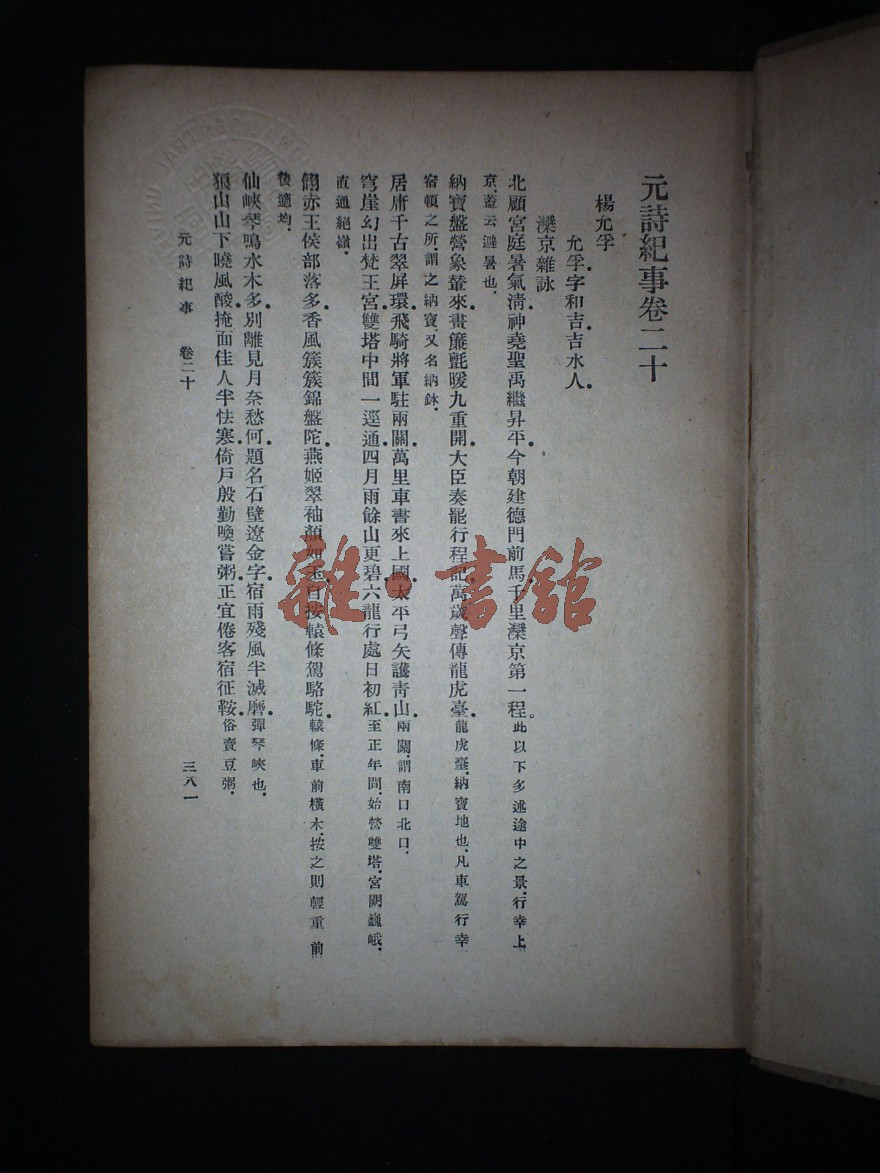 元詩紀事卷二十
楊允孚
允孚字和吉吉水人
灤京雜詠
北顧宮庭暑氣清神堯聖禹繼昇平今朝建德門前馬千里灤京第一程。此以下多述途中之景行幸上
京蓋云避暑也
納寶盤營象輦來畫簾氈暖九重開大臣奏罷行程記萬歲聲傳龍虎臺龍虎臺納寶地也凡車駕行幸
宿頓之所謂之納寶又名納鉢
居庸千古翠屏環飛騎將軍駐兩關萬里車書來上國太平弓矢護青山兩關謂南口北口
穹崖幻出梵王宮雙塔中間一逕通四月雨餘山更碧六龍行處日初紅至正年間始營雙塔宮闕巍峨
直通絕嶺
翎赤王侯部落多香風簇簇錦盤陀燕姬翠袖顏如玉自按轅條駕駱駝轅條車前橫木按之則輕重前
後適均
仙峽琴鳴水木多別離見月奈愁何題名石壁遼金字宿雨殘風半滅磨彈琴峽也
狼山山下曉風酸掩面佳人半怯寒倚戶殷勤喚嘗粥正宜倦客宿征鞍俗賣豆粥
元詩紀事 卷二十 三八一
雜·書館